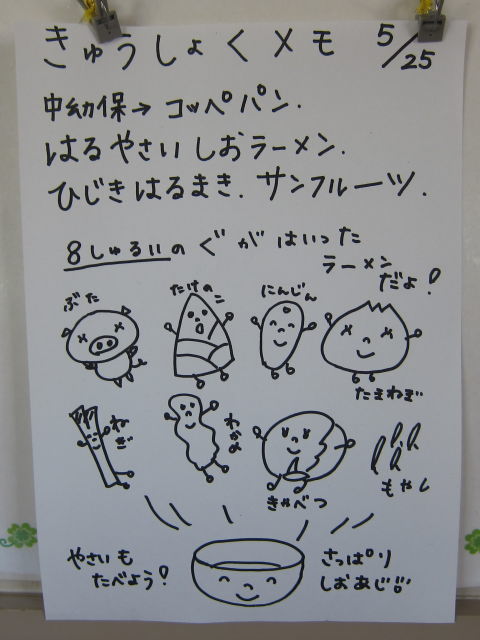 きゅうしょくメモ 5/25
中幼保→ コッペパン.
はるやさいしおラーメン.
ひじきはるまき. サンフルーツ.
8しゅるいのぐがはいった
ラーメンだよ!
ぶた
たけのこ
にんじん
たまねぎ
ねぎ
わかめ
きゃべつ
もやし
やさいも
たべよう!
さっぱり
しおあじ!!